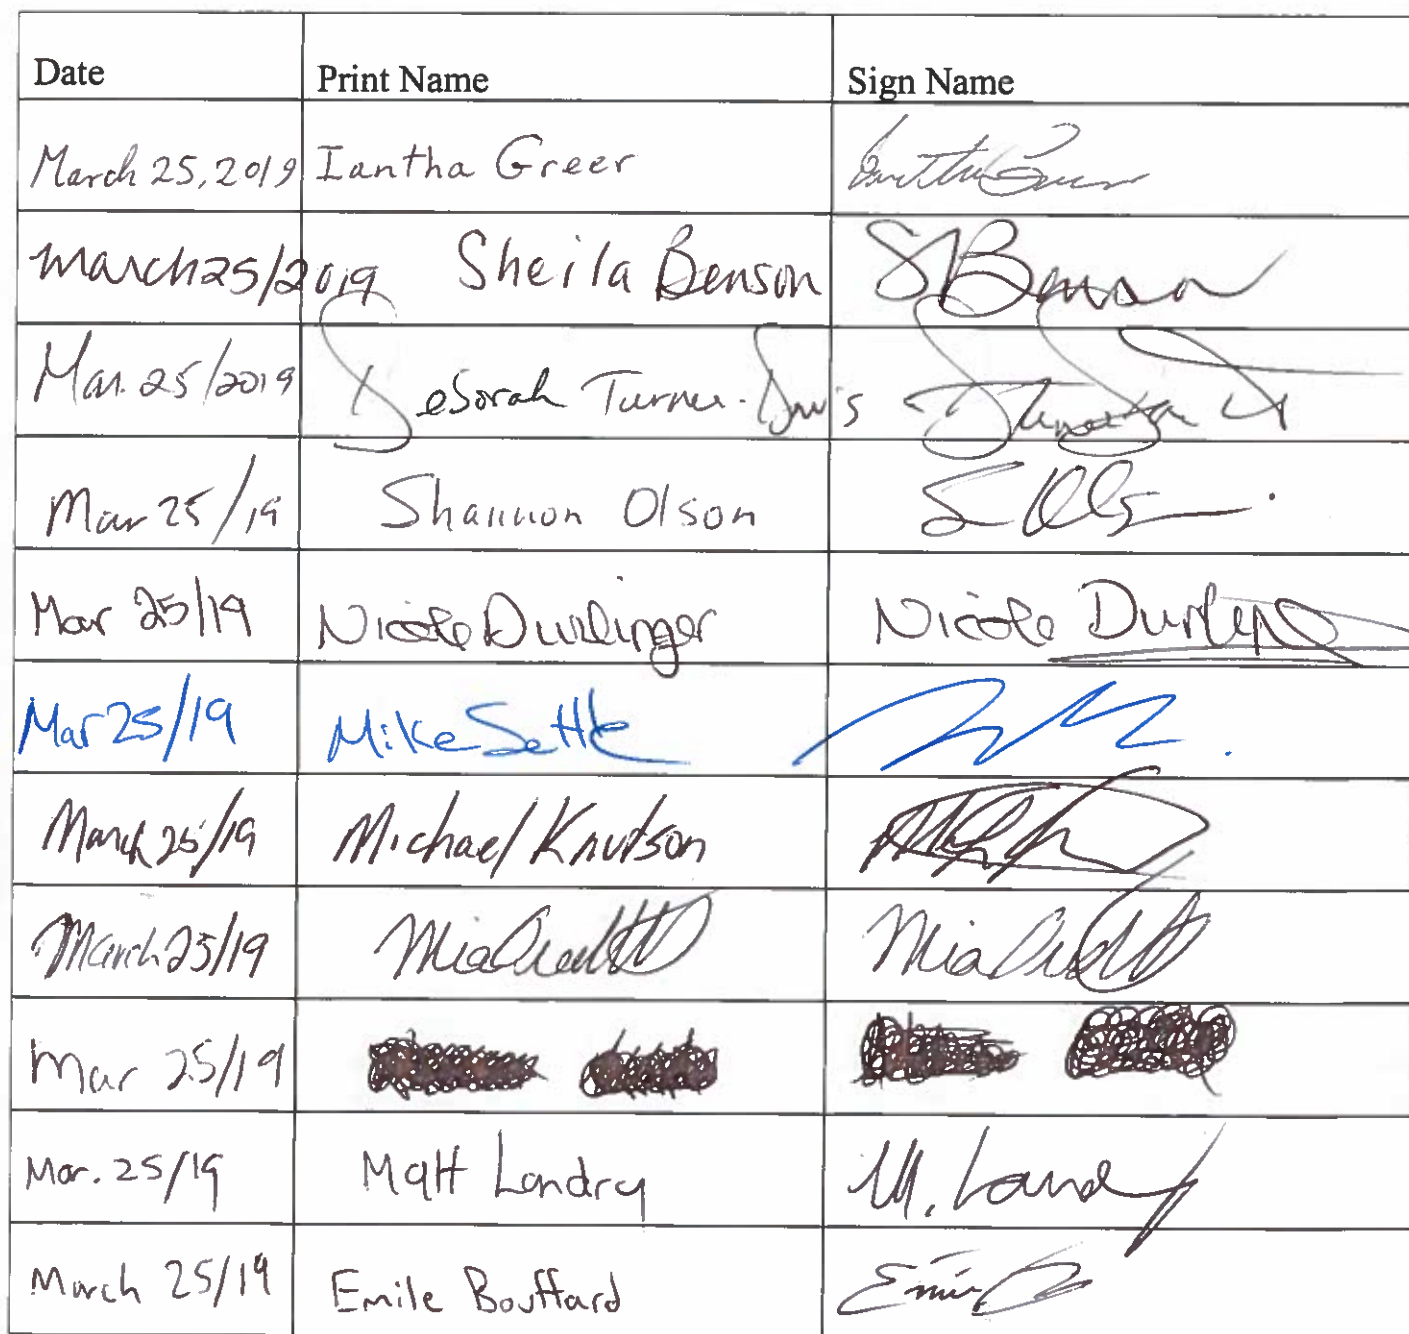 Date Print Name Sign Name
March 25, 2019 Iantha Greer
March 25/2019 Sheila Benson S Benson
Mar. 25/2019 Deborah Turner-Davis
Mar 25/19 Shannon Olson
Mar 25/19 Nicole Durlinger Nicole
Mar 25/19 Mike Settle
March 25/19 Michael Knutson
March 25/19 Mia Mia
Mar 25/19
Mar. 25/19 Matt Landry M. Landry
March 25/19 Emile Bouffard